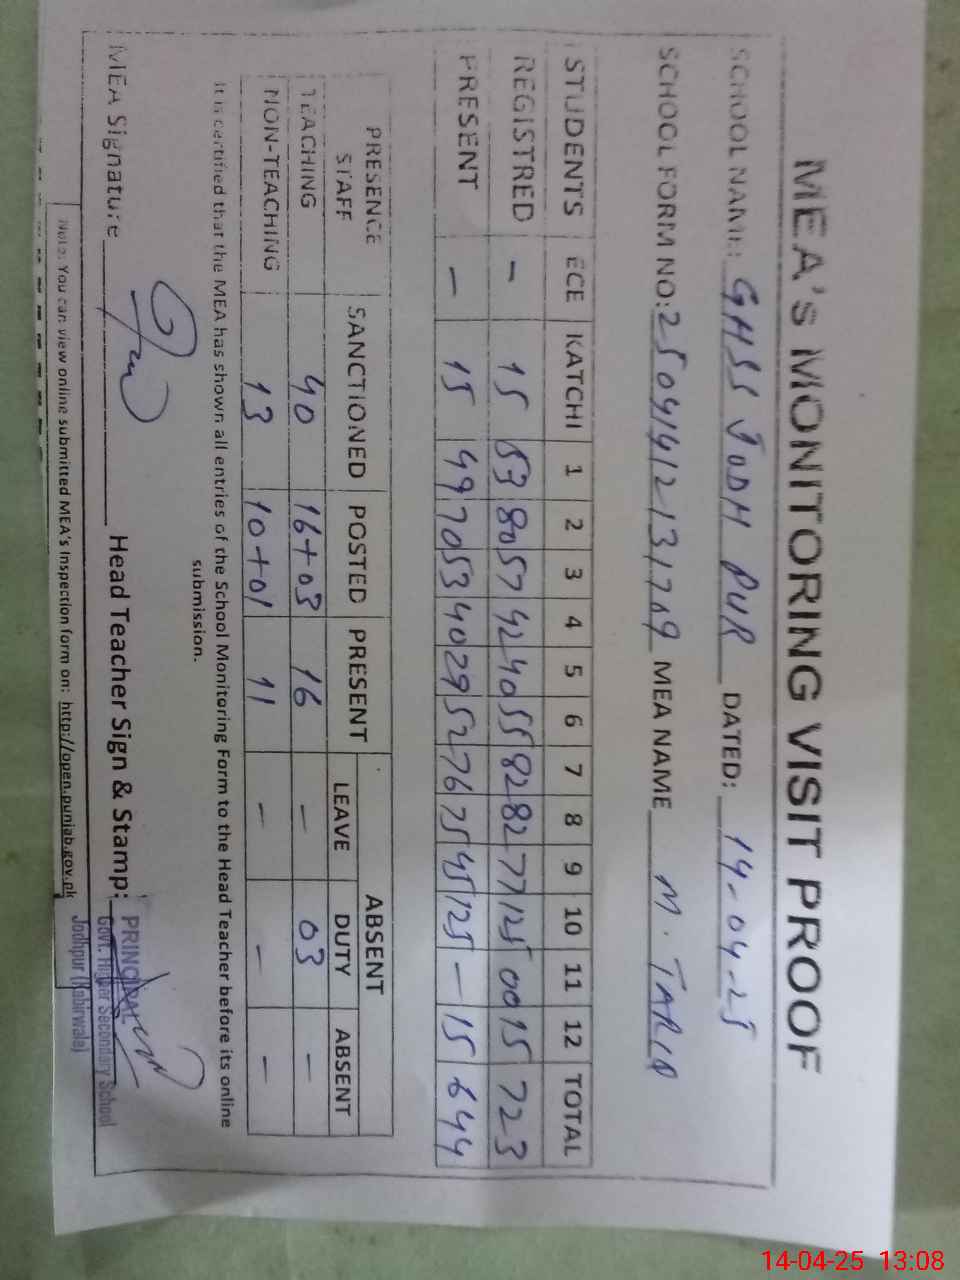 MEA'S MONITORING VISIT PROOF
SCHOOL NAME: GHSS JODH PUR DATED: 14-04-25
SCHOOL FORM NO: 25041412131709 MEA NAME M. TARIQ
STUDENTS ECE KATCHI 1 2 3 4 5 6 7 8 9 10 11 12 TOTAL
REGISTRED - 15 53 80 57 42 40 55 82 82 77 125 00 15 723
PRESENT - 15 49 70 53 40 29 52 76 75 45 125 - 15 644
PRESENCE STAFF SANCTIONED POSTED PRESENT ABSENT
LEAVE DUTY ABSENT
TEACHING 40 16+03 16 - 03 -
NON-TEACHING 13 10+01 11 - - -
It is certified that the MEA has shown all entries of the School Monitoring Form to the Head Teacher before its online
submission.
MEA Signature Head Teacher Sign & Stamp:
PRINCIPAL
Govt. Higher Secondary School
Jodhpur (Kabirwala)
Note: You can view online submitted MEA's Inspection form on: http://open.punjab.gov.pk
14-04-25 13:08